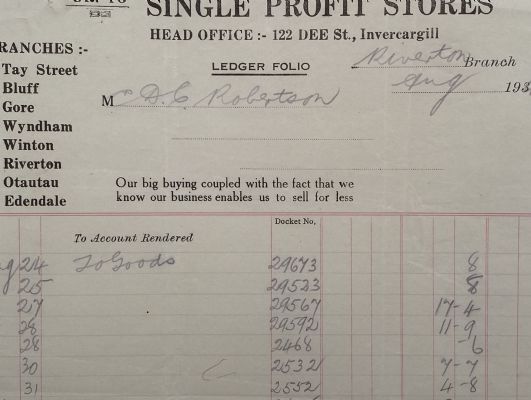 SINGLE PROFIT STORES
HEAD OFFICE :- 122 DEE St., Invercargill
RANCHES :-
Riverton Branch
LEDGER FOLIO
Aug 193
Tay Street
Bluff
Gore
Wyndham
Winton
Riverton
Otautau
Edendale
Mr D. C. Robertson
Our big buying coupled with the fact that we
know our business enables us to sell for less
Docket No,
To Account Rendered
g 24 To Goods 29673 8
25 29523 8
27 29567 17-4
28 29592 11-9
28 2468 -6
30 2532 7-7
31 2552 4-8